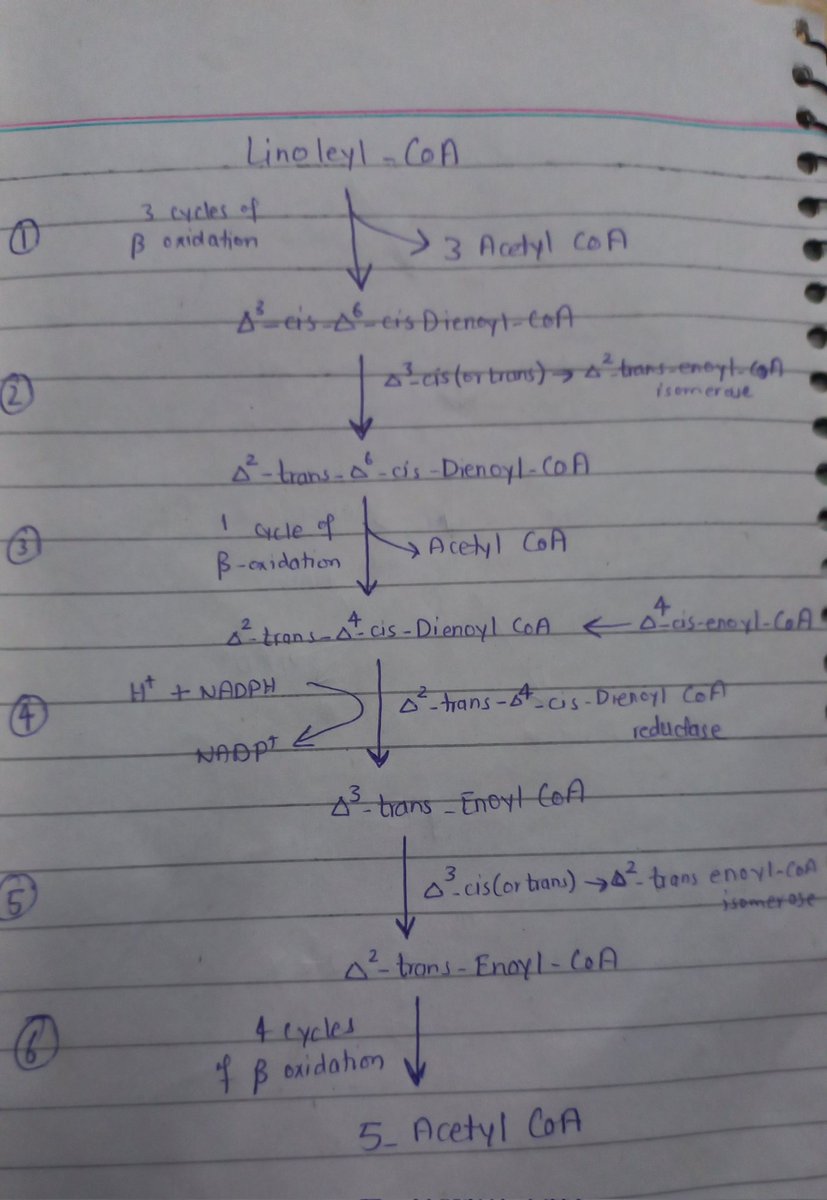 Linoleyl-CoA
① 3 cycles of
β oxidation
3 Acetyl CoA
Δ³-cis-Δ⁶-cis Dienoyl-CoA
② Δ³-cis(or trans) → Δ²-trans-enoyl-CoA
isomerase
Δ²-trans-Δ⁶-cis-Dienoyl-CoA
③ 1 cycle of
β-oxidation
Acetyl CoA
Δ²-trans-Δ⁴-cis-Dienoyl CoA ← Δ⁴-cis-enoyl-CoA
④ H⁺ + NADPH
NADP⁺
Δ²-trans-Δ⁴-cis-Dienoyl CoA
reductase
Δ³-trans-Enoyl CoA
⑤ Δ³-cis(or trans) → Δ²-trans enoyl-CoA
isomerase
Δ²-trans-Enoyl-CoA
⑥ 4 cycles
of β oxidation
5-Acetyl CoA